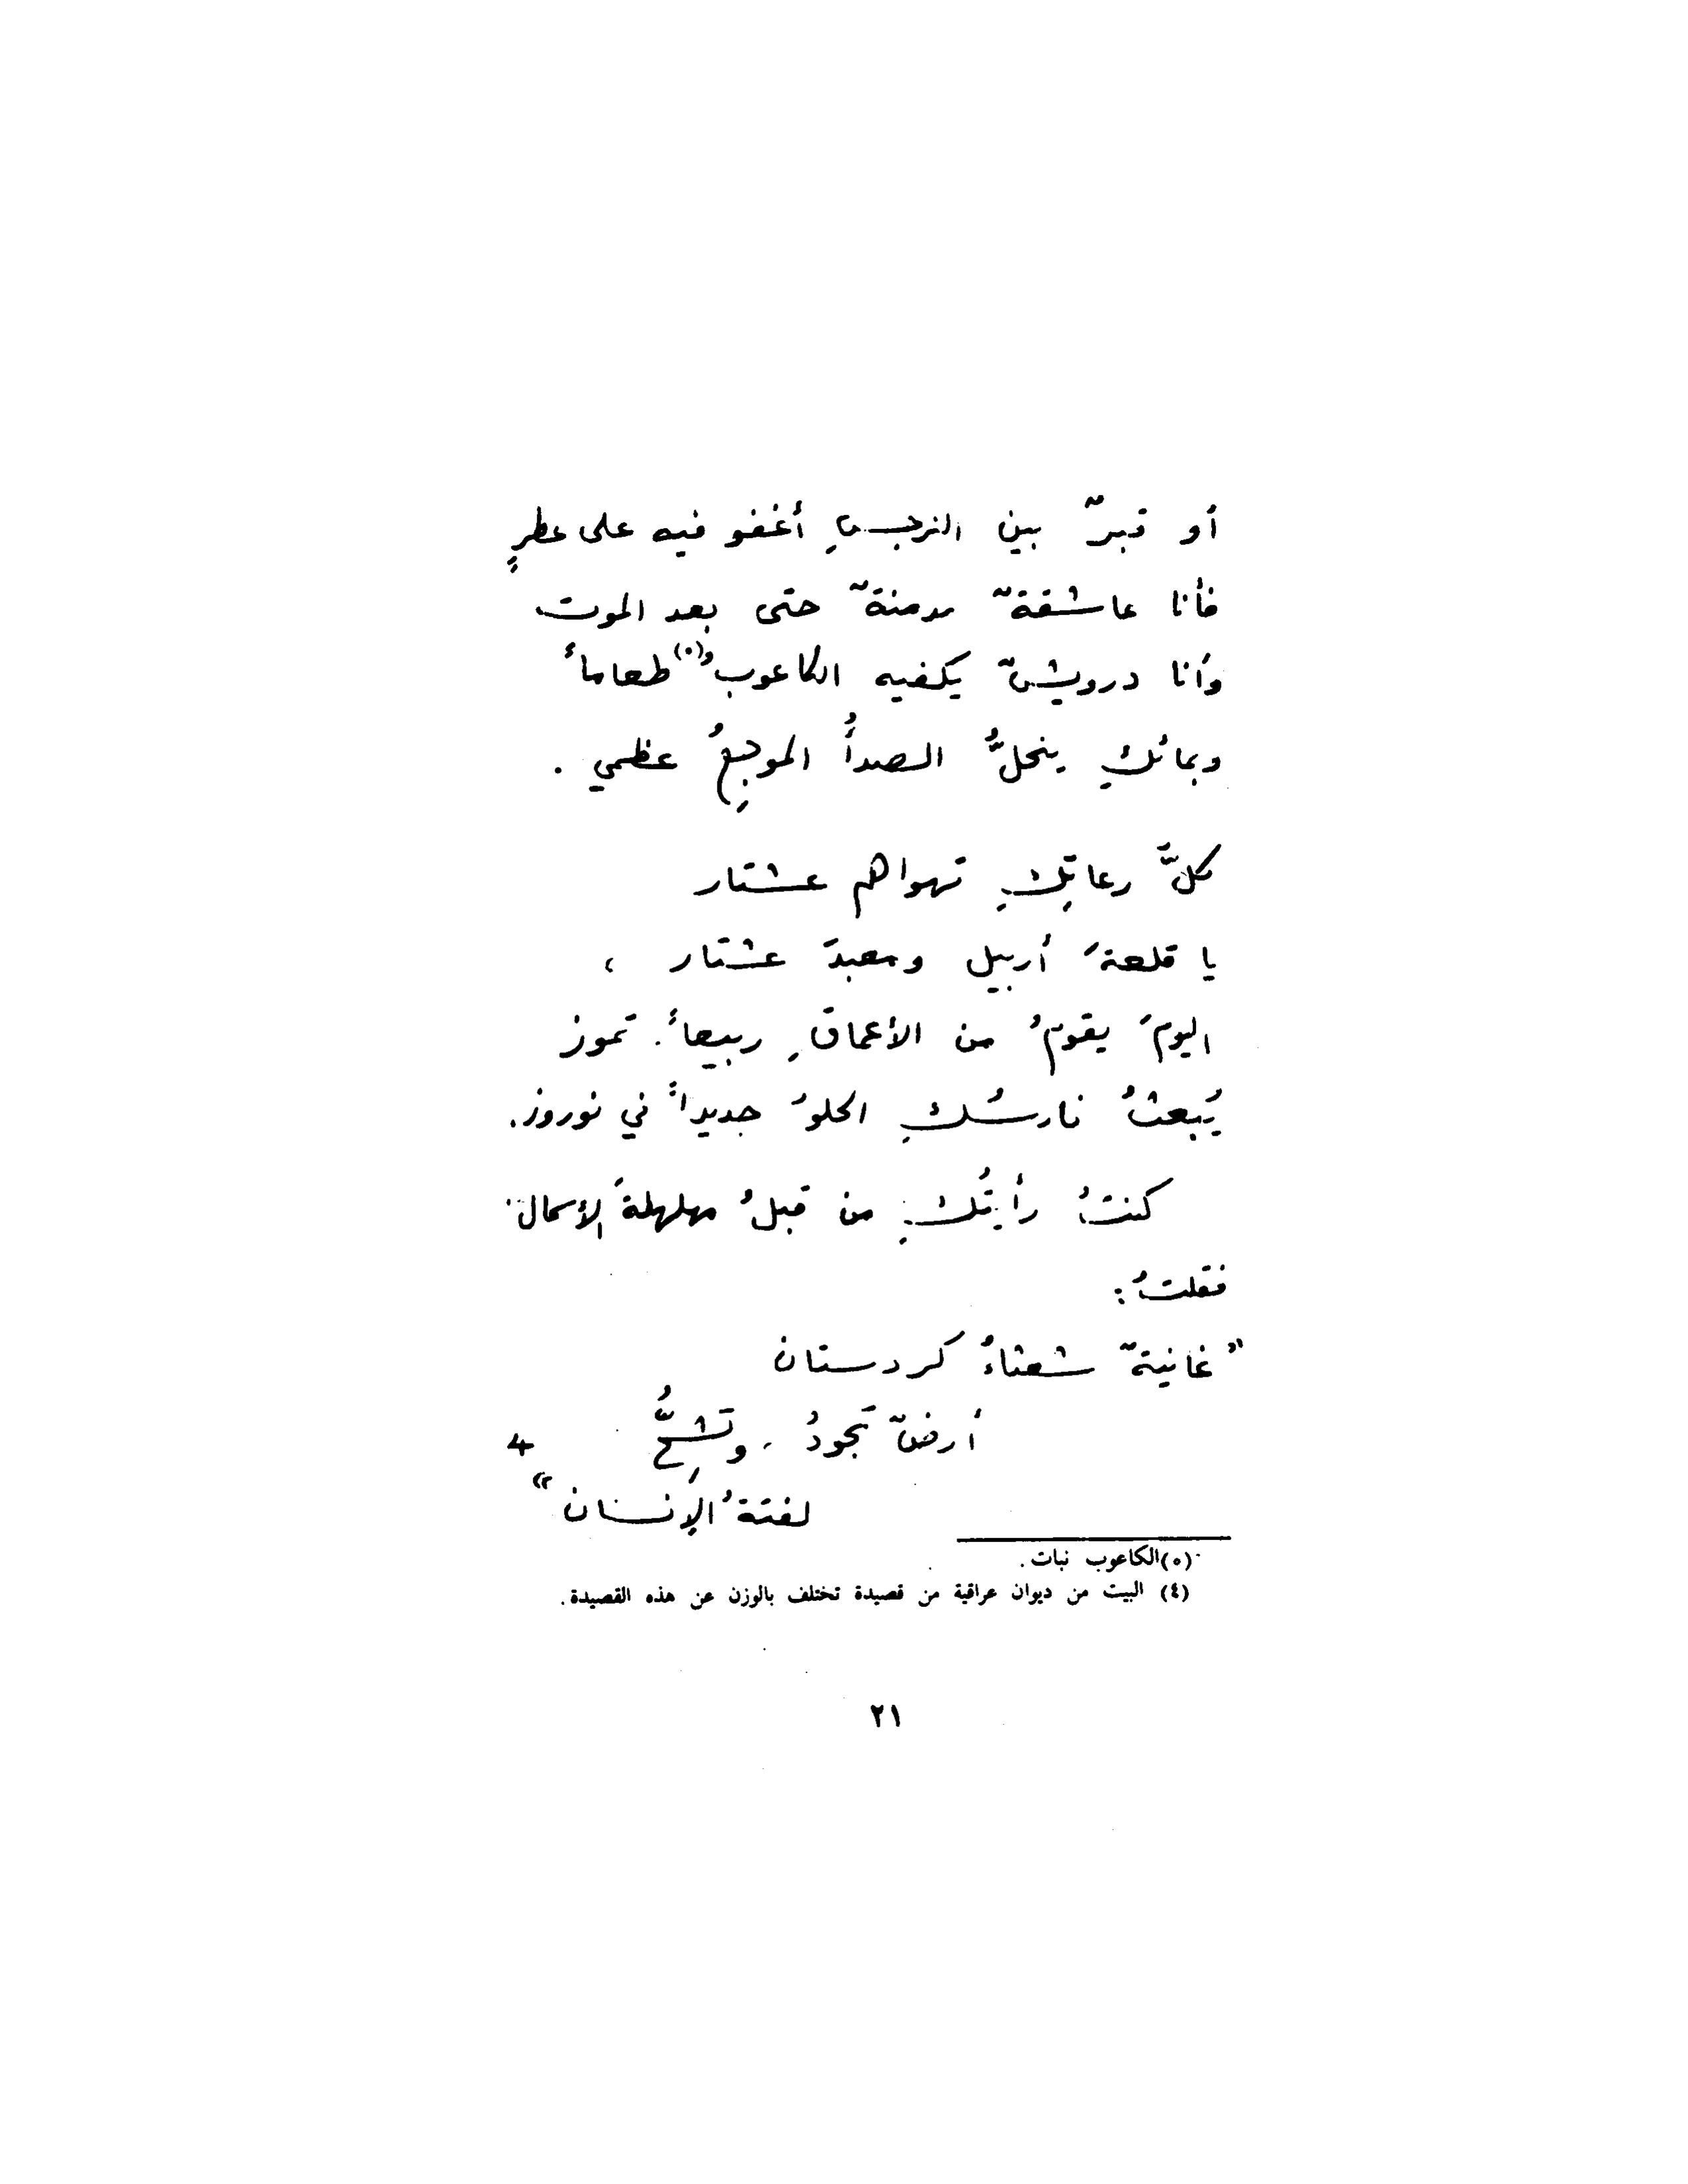 أو قبرٌ بين النرجسِ أغفو فيه على عطرٍ
فأنا عاشقةٌ مدمنةٌ حتى بعد الموت
وأنا درويشٌ يكفيه الكاعوبُ(٥) طعاماً
وبمائكِ ينحلُّ الصدأُ الموجِعُ عظمي .
كلُّ رعاتِكِ تهواهم عشتار
يا قلعةَ أربيل ومعبدَ عشتار ،
اليومَ يقومُ من الأعماقِ ربيعاً. تموز
يُبعثُ فارسُكِ الحلوُ جديداً في نوروز.
كنتُ رأيتُكِ من قبلُ مهلهلةَ الأسمال.
فقلتُ :
" غانيةٌ شعثاءُ كردستان
أرضٌ تجودُ . وتشِحُّ 4
لفتةُ الإنسان "
(٥) الكاعوب نبات .
(٤) البيت من ديوان عراقية من قصيدة تختلف بالوزن عن هذه القصيدة .
٢١